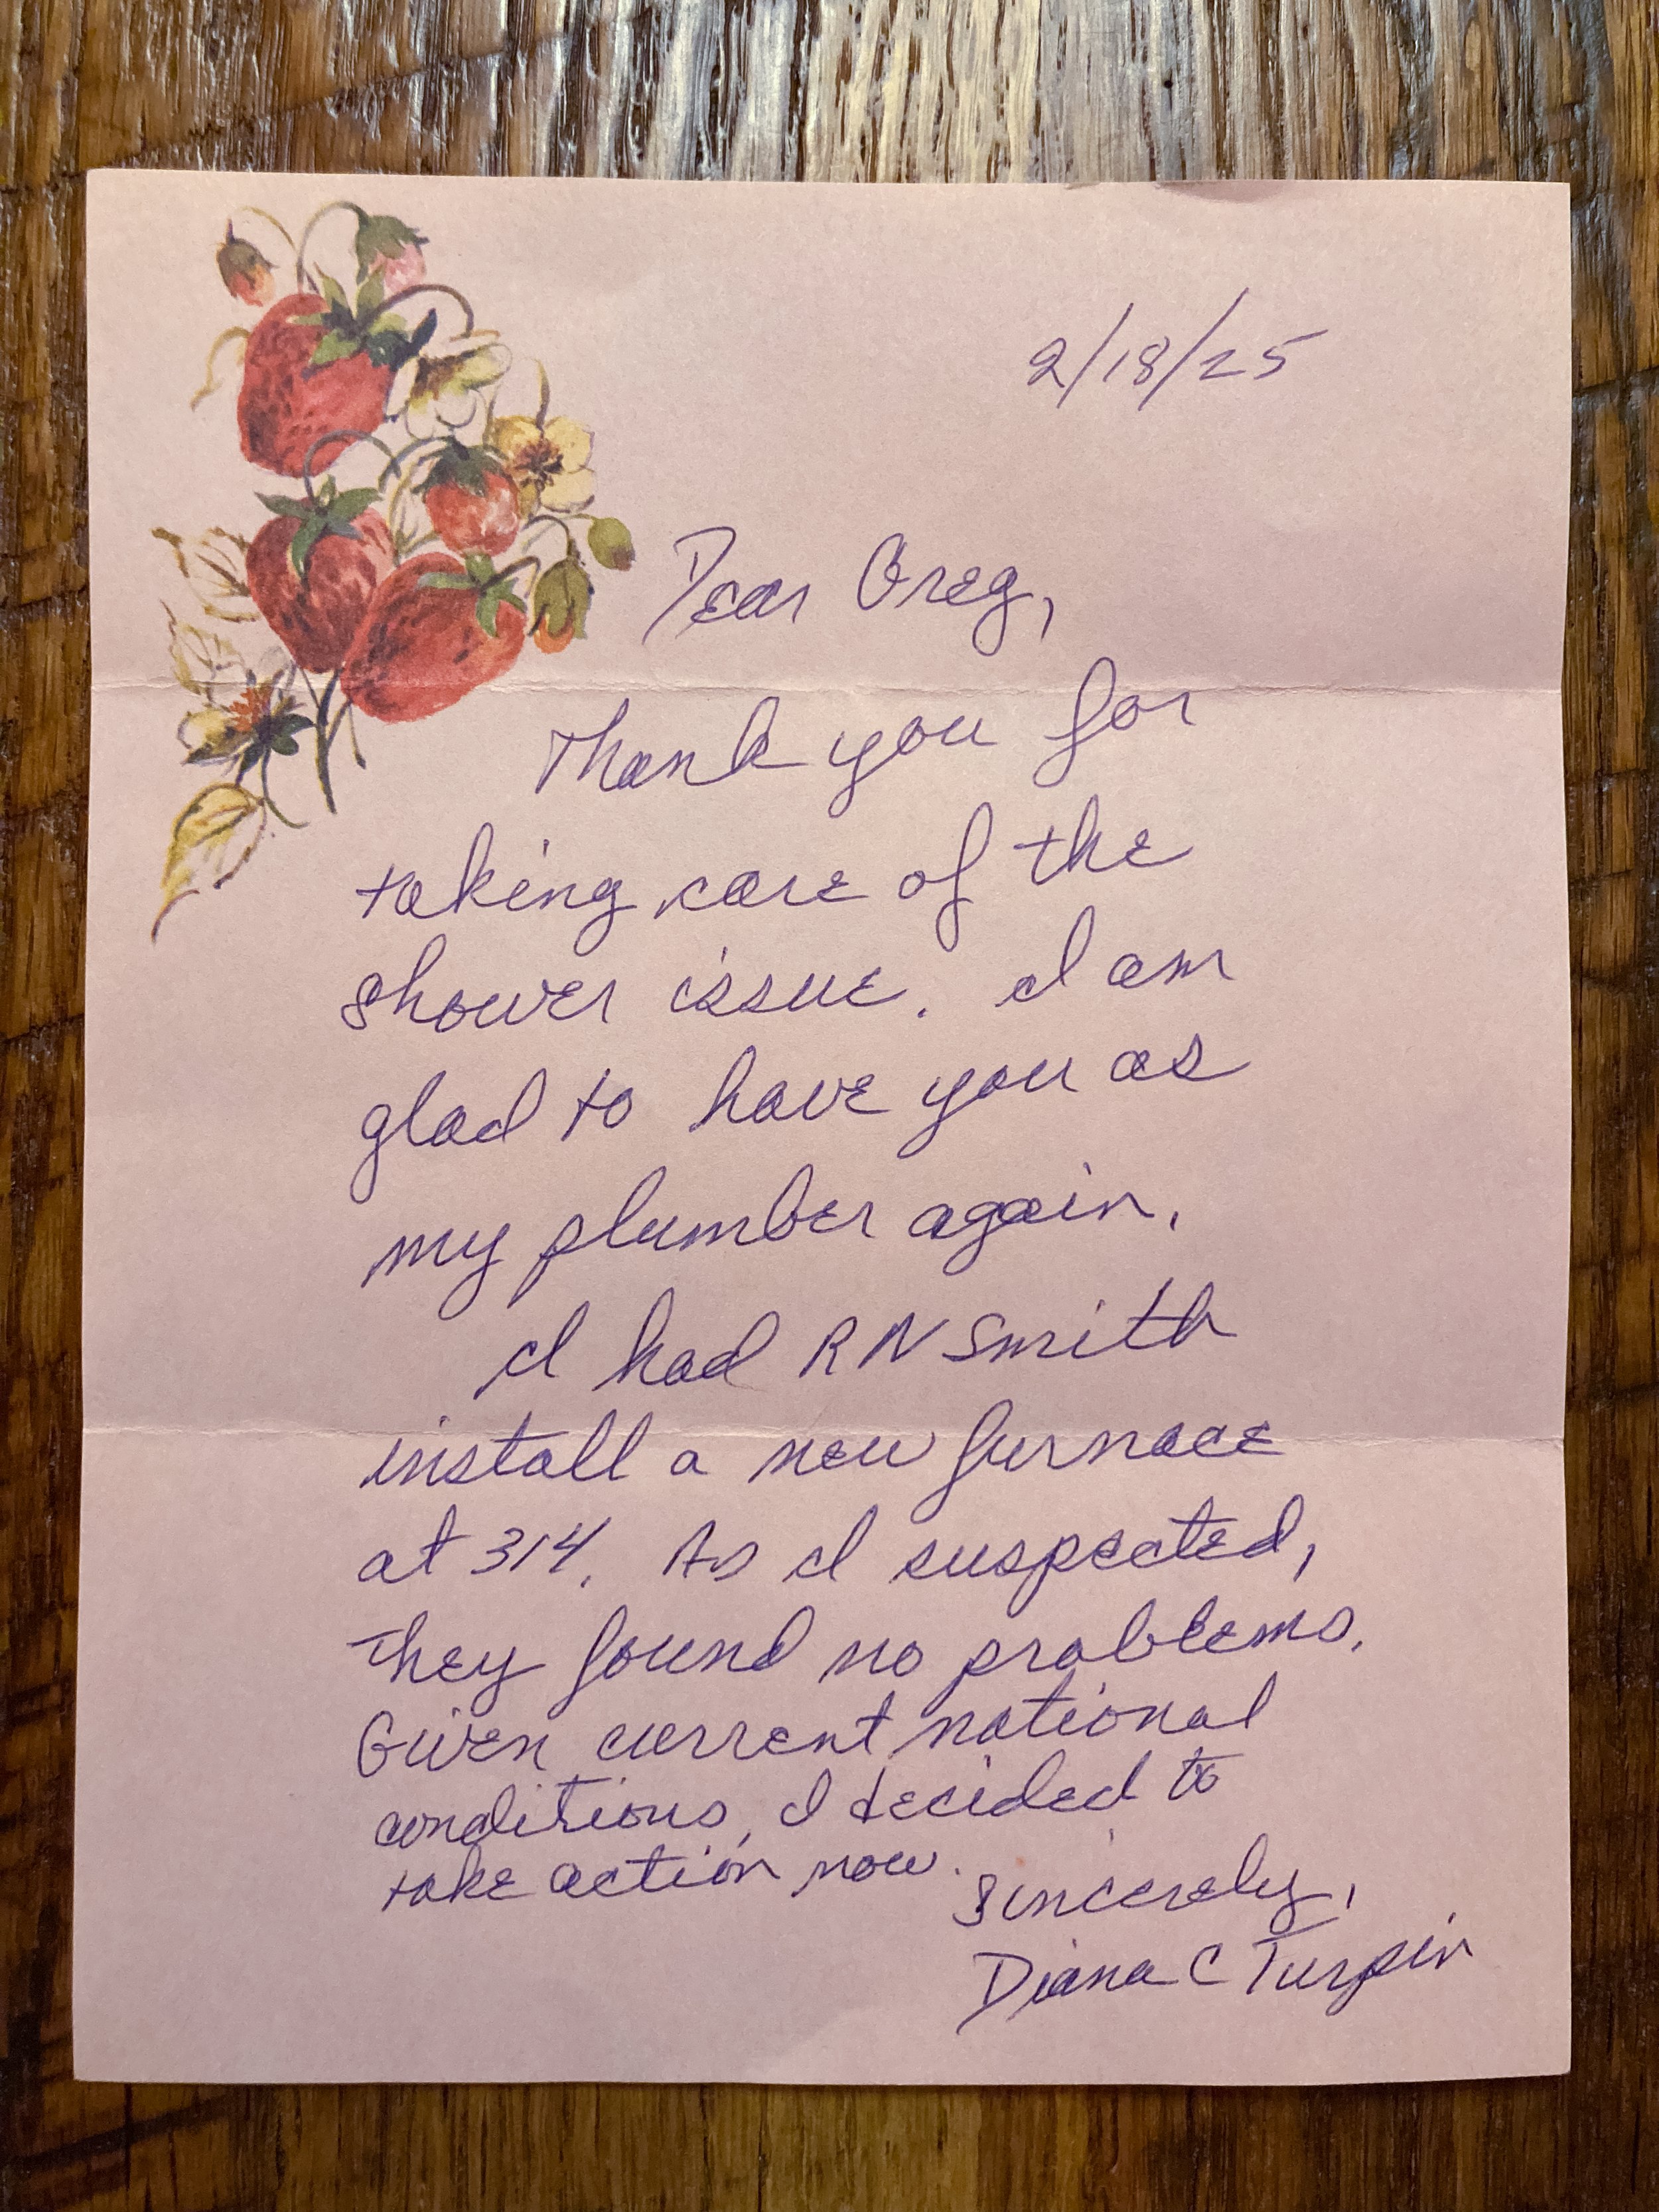 2/18/25
Dear Greg,
Thank you for
taking care of the
shower issue. I am
glad to have you as
my plumber again.
I had RN Smith
install a new furnace
at 314. As I suspected,
they found no problems.
Given current national
conditions, I decided to
take action now.
Sincerely,
Diana C Turpin